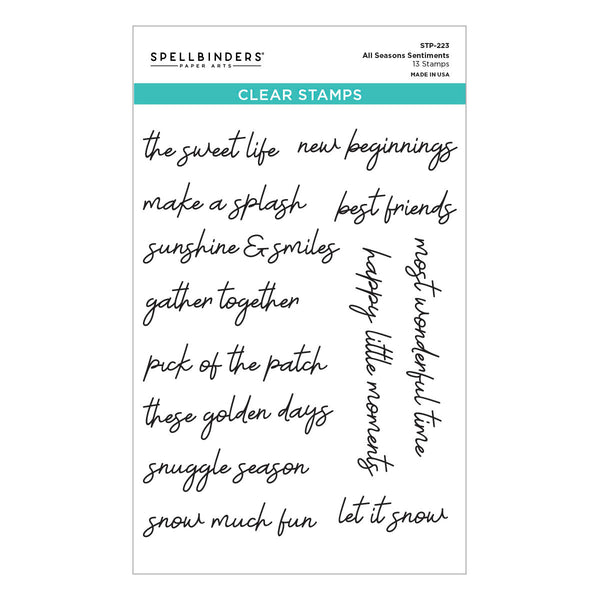 SPELLBINDERS®
PAPER ARTS
STP-223
All Seasons Sentiments
13 Stamps
MADE IN USA
CLEAR STAMPS
the sweet life
new beginnings
make a splash
best friends
sunshine & smiles
gather together
happy little moments
most wonderful time
pick of the patch
these golden days
snuggle season
snow much fun
let it snow